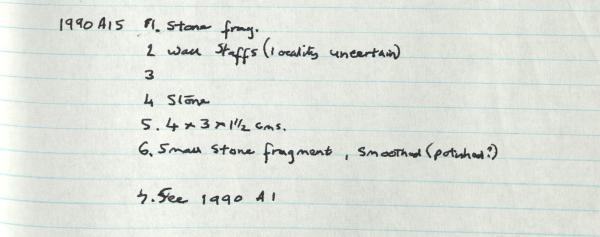 1990 A15 1. Stone frag.
2 Wall Staffs (locality uncertain)
3
4 Stone
5. 4 x 3 x 1½ cms.
6. Small stone fragment, smoothed (polished?)
7. See 1990 A1